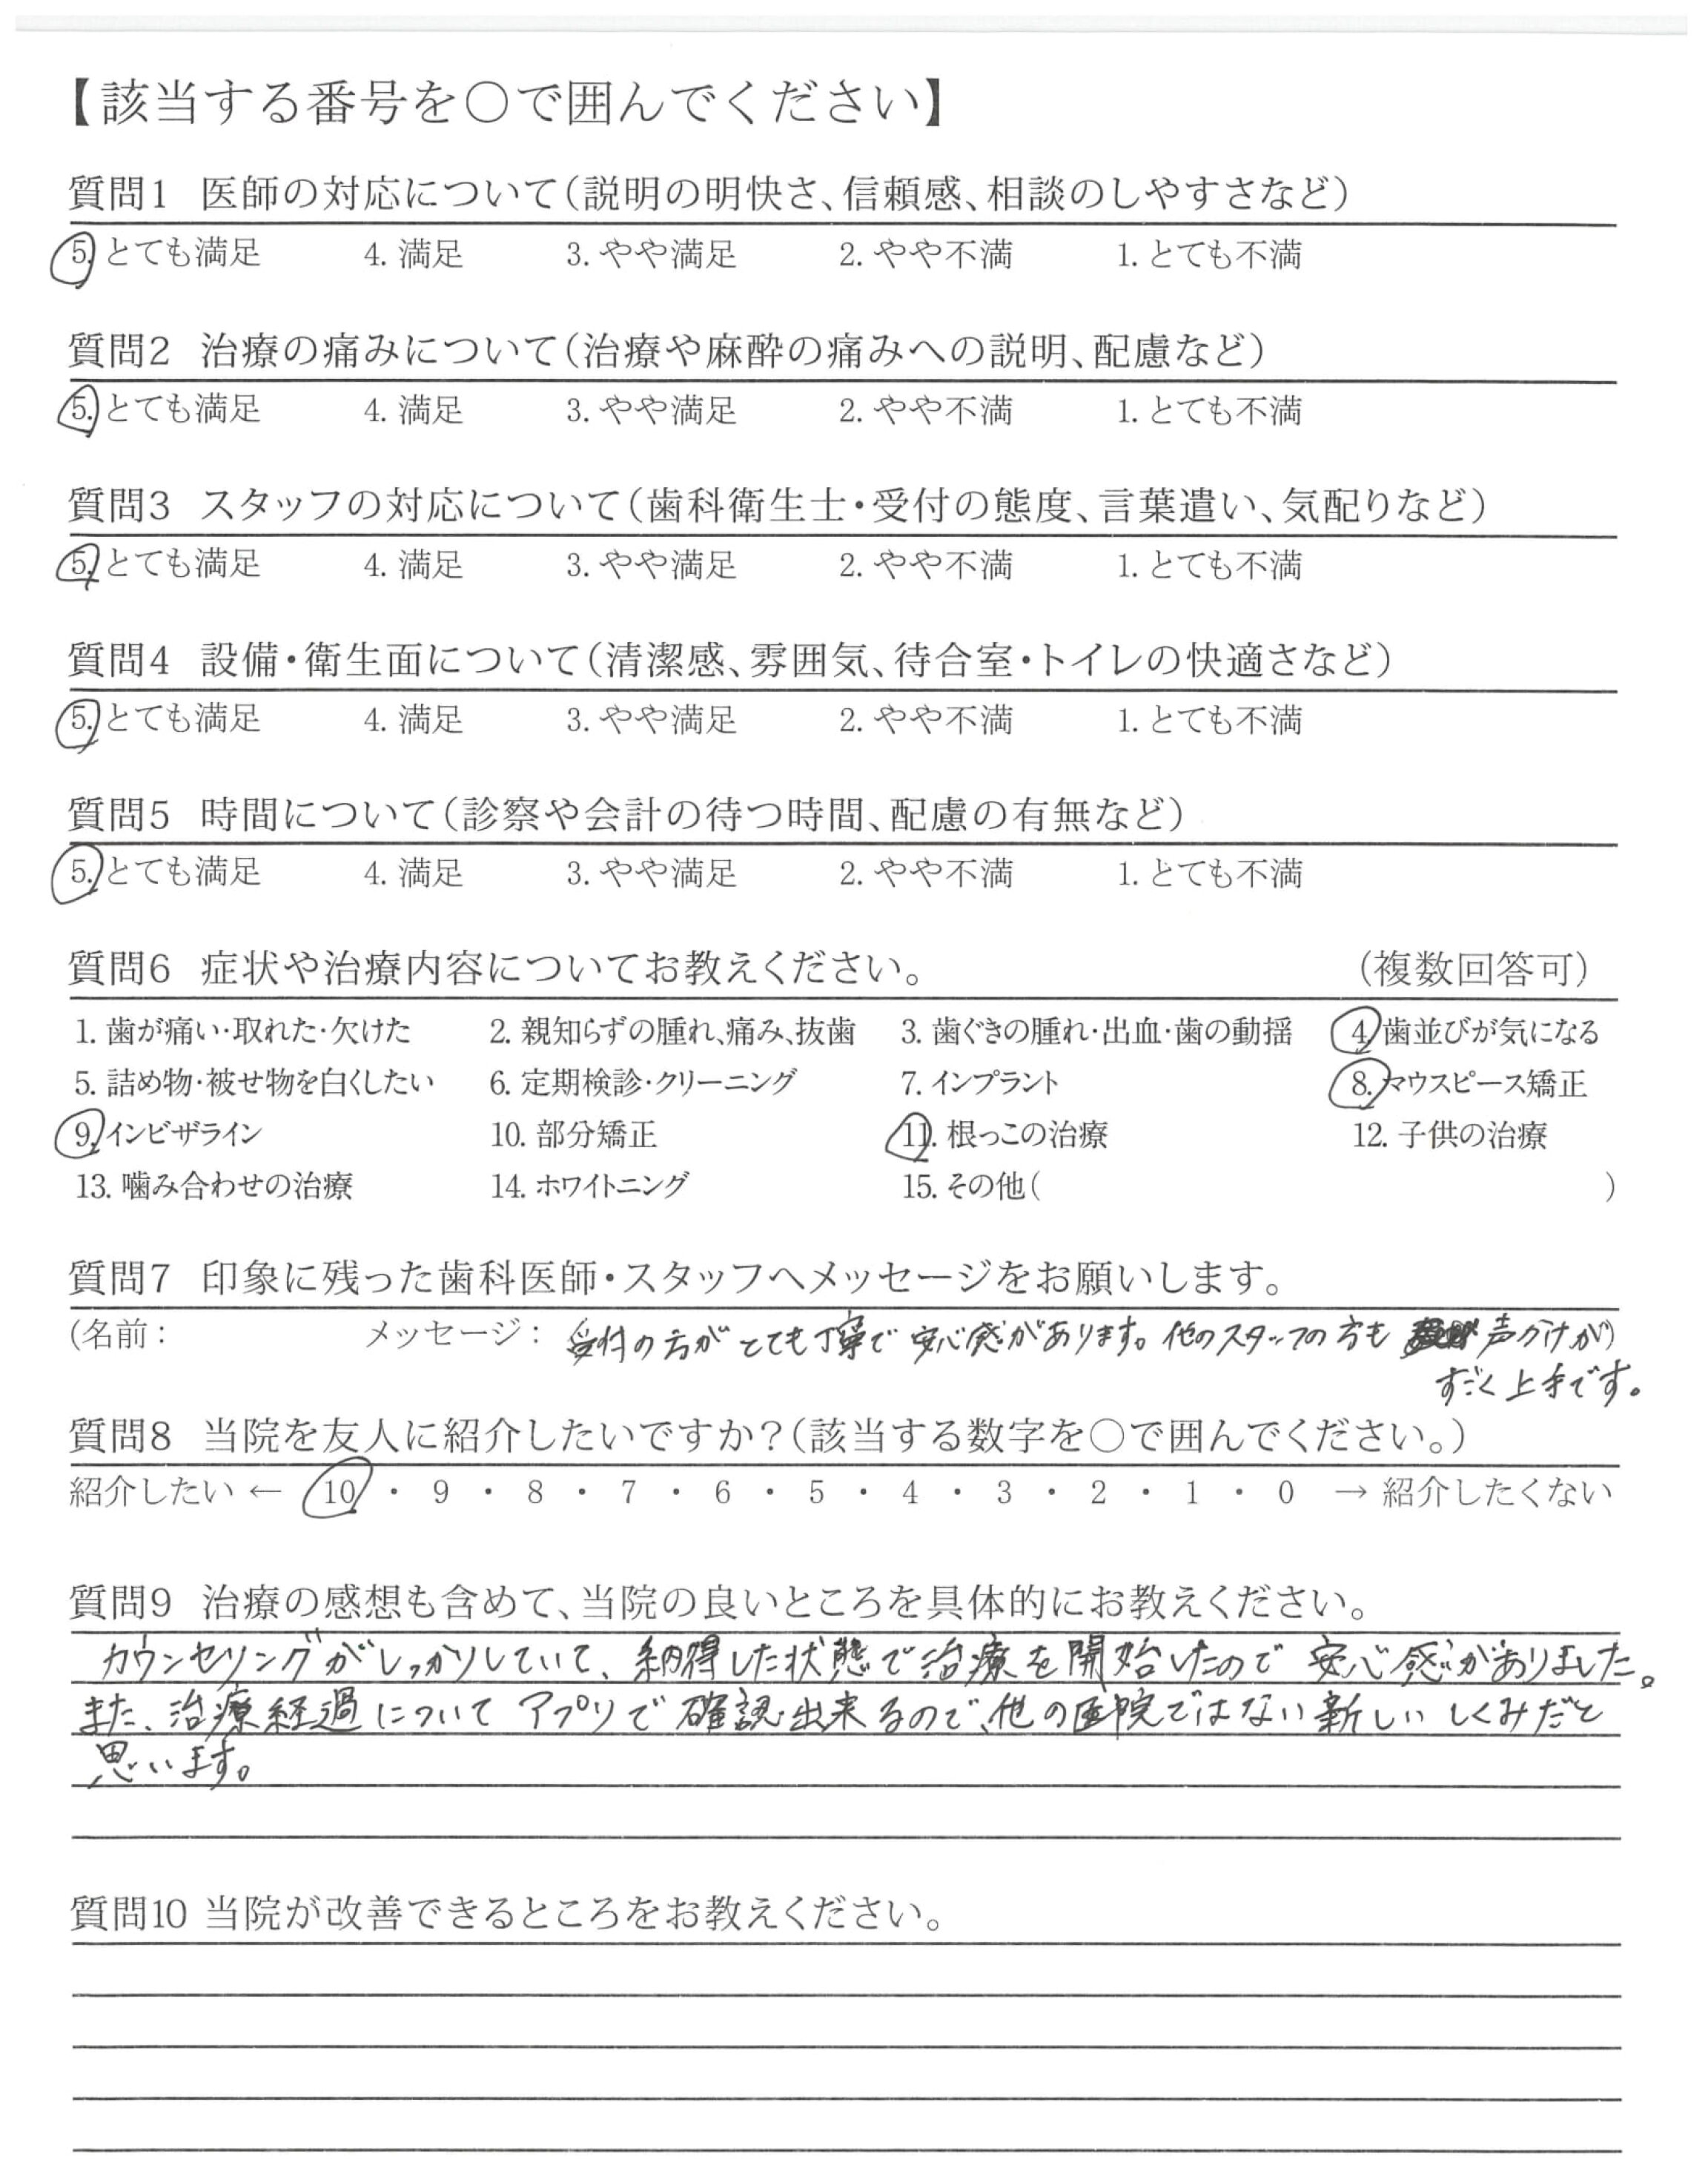 【該当する番号を○で囲んでください】
質問1 医師の対応について(説明の明快さ、信頼感、相談のしやすさなど)
5. とても満足 4. 満足 3. やや満足 2. やや不満 1. とても不満
質問2 治療の痛みについて(治療や麻酔の痛みへの説明、配慮など)
5. とても満足 4. 満足 3. やや満足 2. やや不満 1. とても不満
質問3 スタッフの対応について(歯科衛生士・受付の態度、言葉遣い、気配りなど)
5. とても満足 4. 満足 3. やや満足 2. やや不満 1. とても不満
質問4 設備・衛生面について(清潔感、雰囲気、待合室・トイレの快適さなど)
5. とても満足 4. 満足 3. やや満足 2. やや不満 1. とても不満
質問5 時間について(診察や会計の待つ時間、配慮の有無など)
5. とても満足 4. 満足 3. やや満足 2. やや不満 1. とても不満
質問6 症状や治療内容についてお教えください。 (複数回答可)
1. 歯が痛い・取れた・欠けた 2. 親知らずの腫れ、痛み、抜歯 3. 歯ぐきの腫れ・出血・歯の動揺 4. 歯並びが気になる
5. 詰め物・被せ物を白くしたい 6. 定期検診・クリーニング 7. インプラント 8. マウスピース矯正
9. インビザライン 10. 部分矯正 11. 根っこの治療 12. 子供の治療
13. 噛み合わせの治療 14. ホワイトニング 15. その他( )
質問7 印象に残った歯科医師・スタッフへメッセージをお願いします。
(名前: メッセージ: 受付の方がとても丁寧で安心感があります。他のスタッフの方も 声かけが)
すごく上手です。
質問8 当院を友人に紹介したいですか?(該当する数字を○で囲んでください。)
紹介したい ← 10 ・ 9 ・ 8 ・ 7 ・ 6 ・ 5 ・ 4 ・ 3 ・ 2 ・ 1 ・ 0 → 紹介したくない
質問9 治療の感想も含めて、当院の良いところを具体的にお教えください。
カウンセリングがしっかりしていて、納得した状態で治療を開始したので安心感がありました。
また、治療経過についてアプリで確認出来るので、他の医院ではない新しいしくみだと
思います。
質問10 当院が改善できるところをお教えください。